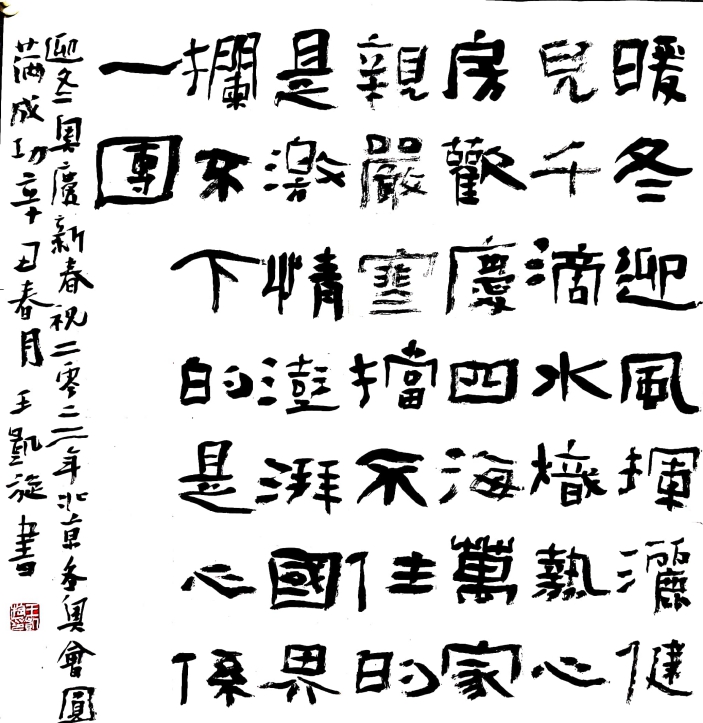 暖冬迎風揮灑健
兒千滴水熾熱心
房歡慶四海萬家
親嚴寒擋不住的
是激情澎湃國界
攔不下的是心係
一團
迎冬奧慶新春祝二零二二年北京冬奧會圓
滿成功辛丑春月王凱旋書